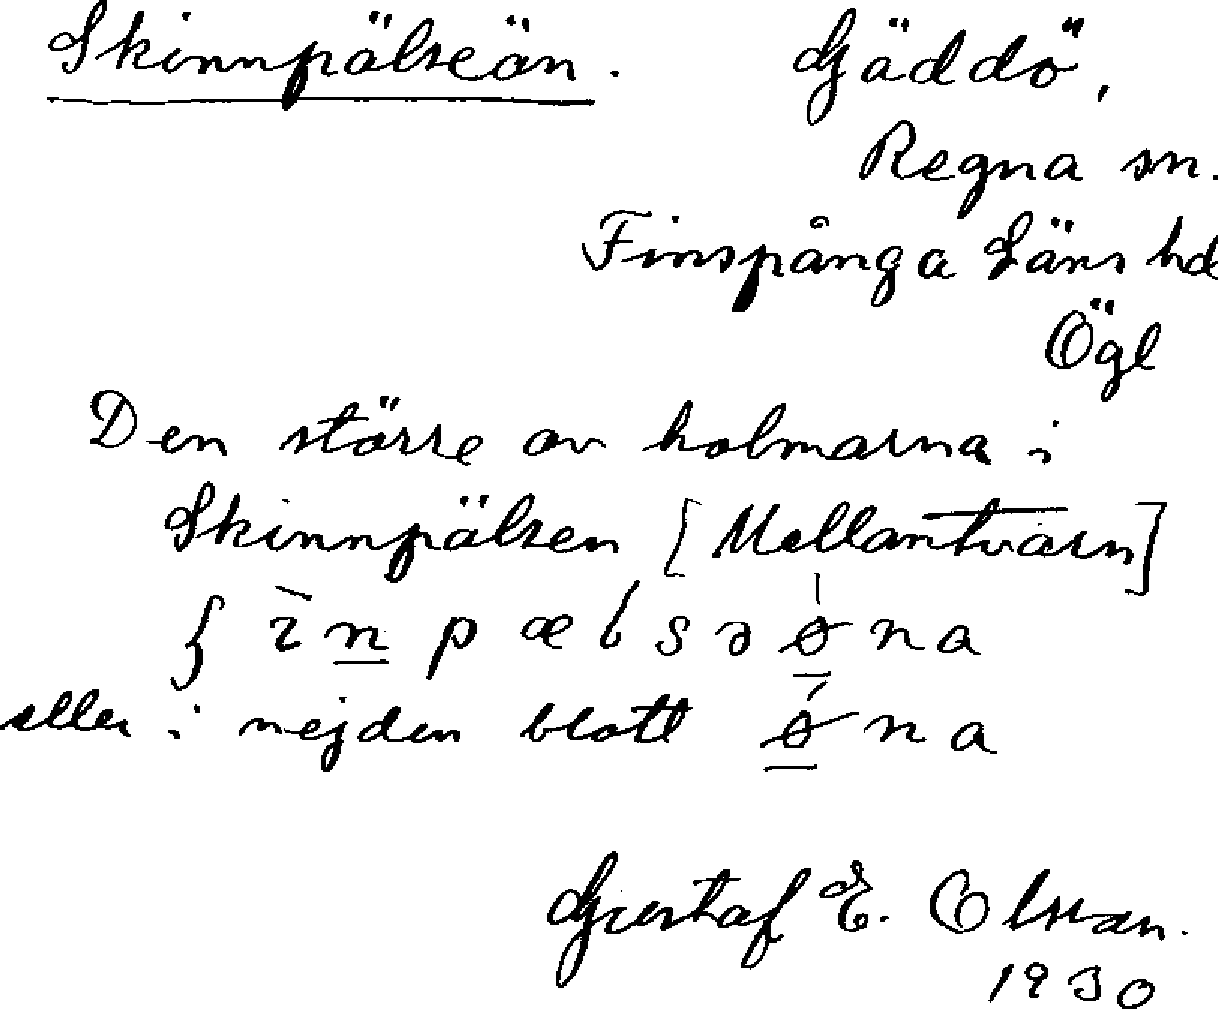 Skinnpälseön. Gäddö,
Regna sn.
Finspånga Läns hd
Ögl
Den större av holmarna i
Skinnpälsen [Mellantvärn]
eller i nejden blott
Gustaf E. Olsson.
1930